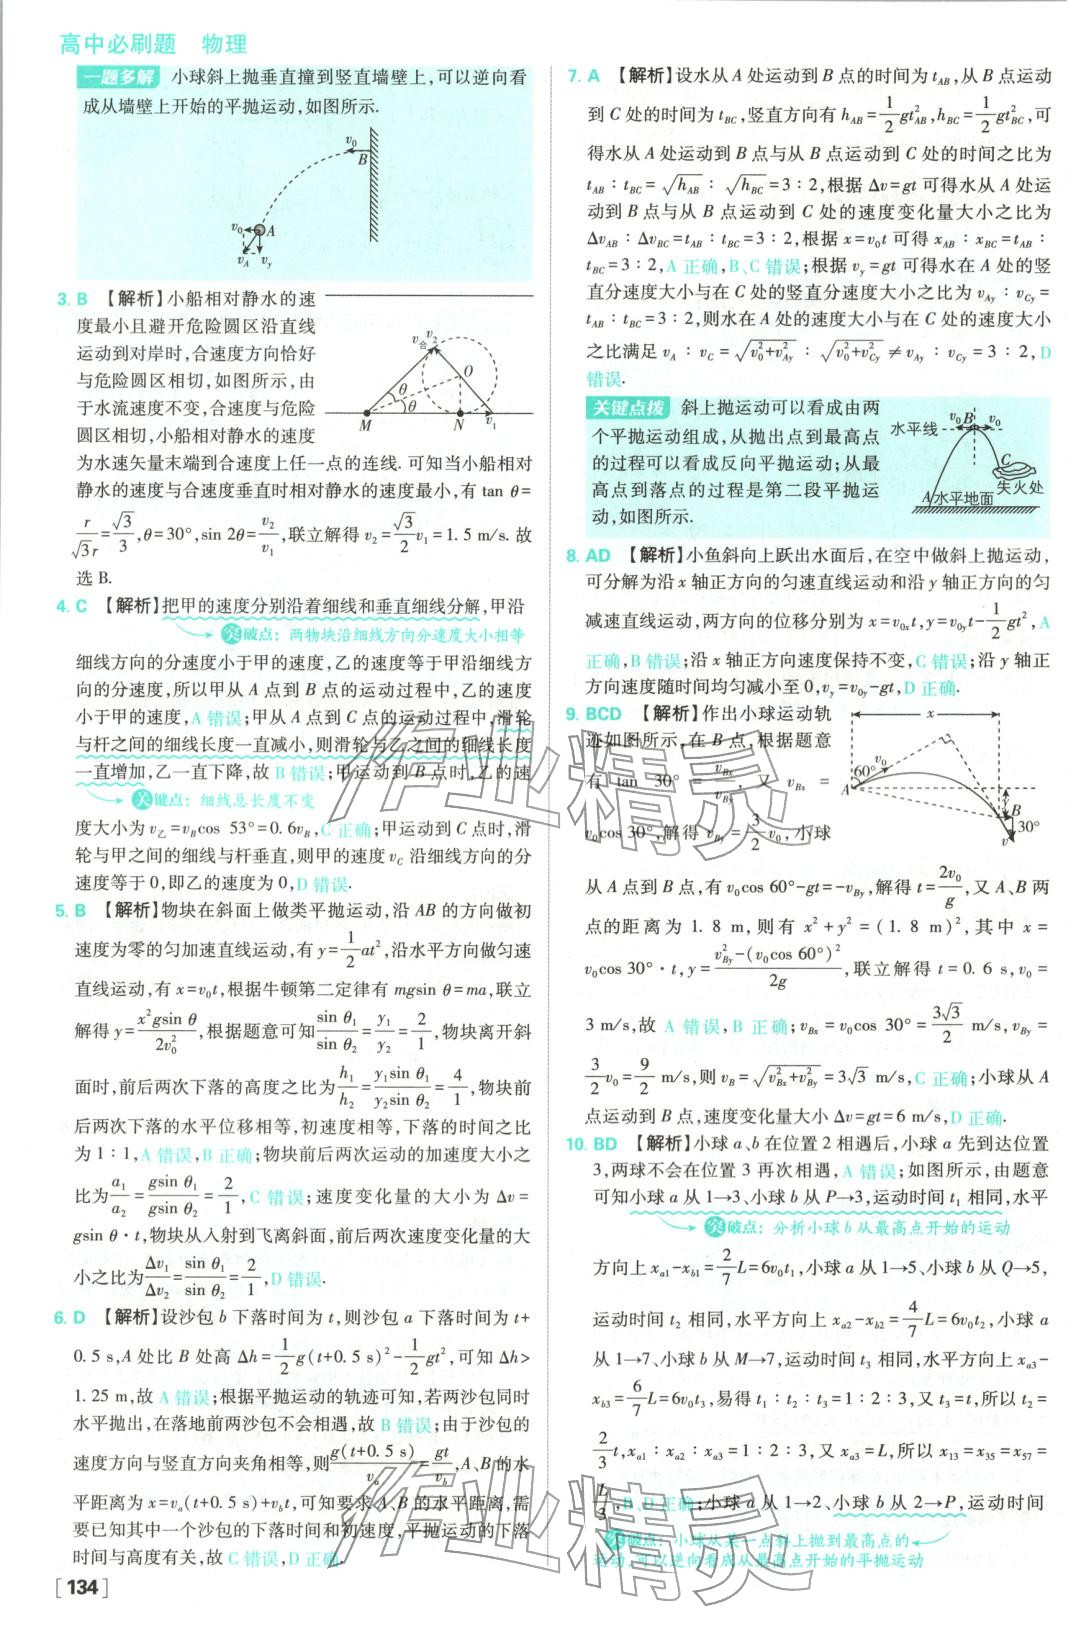 高中必刷题 物理
一题多解 小球斜上抛垂直撞到竖直墙壁上,可以逆向看
成从墙壁上开始的平抛运动,如图所示.
v₀
B
v₀
A
v_A
v_y
3. B 【解析】小船相对静水的速
度最小且避开危险圆区沿直线
运动到对岸时,合速度方向恰好
与危险圆区相切,如图所示,由
于水流速度不变,合速度与危险
圆区相切,小船相对静水的速度
v合 v₂
O
θ
θ
M N v₁
为水速矢量末端到合速度上任一点的连线. 可知当小船相对
静水的速度与合速度垂直时相对静水的速度最小,有 tan θ=
r/(√3r)=√3/3,θ=30°,sin 2θ=v₂/v₁,联立解得 v₂=(√3/2)v₁=1.5 m/s. 故
选 B.
4. C 【解析】把甲的速度分别沿着细线和垂直细线分解,甲沿
突破点: 两物块沿细线方向分速度大小相等
细线方向的分速度小于甲的速度,乙的速度等于甲沿细线方
向的分速度,所以甲从 A 点到 B 点的运动过程中,乙的速度
小于甲的速度,A 错误;甲从 A 点到 C 点的运动过程中,滑轮
与杆之间的细线长度一直减小,则滑轮与乙之间的细线长度
一直增加,乙一直下降,故 B 错误;甲运动到 B 点时,乙的速
关键点: 细线总长度不变
度大小为 v乙=v_B cos 53°=0.6v_B,C 正确;甲运动到 C 点时,滑
轮与甲之间的细线与杆垂直,则甲的速度 v_C 沿细线方向的分
速度等于 0,即乙的速度为 0,D 错误.
5. B 【解析】物块在斜面上做类平抛运动,沿 AB 的方向做初
速度为零的匀加速直线运动,有 y=(1/2)at²,沿水平方向做匀速
直线运动,有 x=v₀t,根据牛顿第二定律有 mgsin θ=ma,联立
解得 y=x²gsin θ/(2v₀²),根据题意可知 sin θ₁/sin θ₂=y₁/y₂=2/1,物块离开斜
面时,前后两次下落的高度之比为 h₁/h₂=y₁sin θ₁/(y₂sin θ₂)=4/1,物块前
后两次下落的水平位移相等,初速度相等,下落的时间之比
为 1∶1,A 错误,B 正确;物块前后两次运动的加速度大小之
比为 a₁/a₂=gsin θ₁/(gsin θ₂)=2/1,C 错误;速度变化量的大小为 Δv=
gsin θ·t,物块从入射到飞离斜面,前后两次速度变化量的大
小之比为 Δv₁/Δv₂=sin θ₁/sin θ₂=2/1,D 错误.
6. D 【解析】设沙包 b 下落时间为 t,则沙包 a 下落时间为 t+
0.5 s,A 处比 B 处高 Δh=(1/2)g(t+0.5 s)²-(1/2)gt²,可知 Δh>
1.25 m,故 A 错误;根据平抛运动的轨迹可知,若两沙包同时
水平抛出,在落地前两沙包不会相遇,故 B 错误;由于沙包的
速度方向与竖直方向夹角相等,则 g(t+0.5 s)/v_a=gt/v_b,A、B 的水
平距离为 x=v_a(t+0.5 s)+v_b t,可知要求 A、B 的水平距离,需
要已知其中一个沙包的下落时间和初速度,平抛运动的下落
时间与高度有关,故 C 错误,D 正确.
[134]
7. A 【解析】设水从 A 处运动到 B 点的时间为 t_AB,从 B 点运动
到 C 处的时间为 t_BC,竖直方向有 h_AB=(1/2)gt²_AB,h_BC=(1/2)gt²_BC,可
得水从 A 处运动到 B 点与从 B 点运动到 C 处的时间之比为
t_AB∶t_BC=√h_AB∶√h_BC=3∶2,根据 Δv=gt 可得水从 A 处运
动到 B 点与从 B 点运动到 C 处的速度变化量大小之比为
Δv_AB∶Δv_BC=t_AB∶t_BC=3∶2,根据 x=v₀t 可得 x_AB∶x_BC=t_AB∶
t_BC=3∶2,A 正确,B、C 错误;根据 v_y=gt 可得水在 A 处的竖
直分速度大小与在 C 处的竖直分速度大小之比为 v_Ay∶v_Cy=
t_AB∶t_BC=3∶2,则水在 A 处的速度大小与在 C 处的速度大小
之比满足 v_A∶v_C=√(v₀²+v²_Ay)∶√(v₀²+v²_Cy)≠v_Ay∶v_Cy=3∶2,D
错误.
关键点拨 斜上抛运动可以看成由两
个平抛运动组成,从抛出点到最高点
的过程可以看成反向平抛运动;从最
高点到落点的过程是第二段平抛运
动,如图所示.
v₀ B v₀
水平线
C
失火处
A 水平地面
8. AD 【解析】小鱼斜向上跃出水面后,在空中做斜上抛运动,
可分解为沿 x 轴正方向的匀速直线运动和沿 y 轴正方向的匀
减速直线运动,两方向的位移分别为 x=v₀ₓt,y=v_0y t-(1/2)gt²,A
正确,B 错误;沿 x 轴正方向速度保持不变,C 错误;沿 y 轴正
方向速度随时间均匀减小至 0,v_y=v_0y-gt,D 正确.
9. BCD 【解析】作出小球运动轨
迹如图所示,在 B 点,根据题意
有 tan 30°=v_Bx/v_By,又 v_Bx=
v₀cos 30°,解得 v_By=(3/2)v₀,小球
x
v₀
60°
A
B
30°
v
从 A 点到 B 点,有 v₀cos 60°-gt=-v_By,解得 t=2v₀/g,又 A、B 两
点的距离为 1.8 m,则有 x²+y²=(1.8 m)²,其中 x=
v₀cos 30°·t,y=(v²_By-(v₀cos 60°)²)/(2g),联立解得 t=0.6 s,v₀=
3 m/s,故 A 错误,B 正确;v_Bx=v₀cos 30°=3√3/2 m/s,v_By=
(3/2)v₀=9/2 m/s,则 v_B=√(v²_Bx+v²_By)=3√3 m/s,C 正确;小球从 A
点运动到 B 点,速度变化量大小 Δv=gt=6 m/s,D 正确.
10. BD 【解析】小球 a、b 在位置 2 相遇后,小球 a 先到达位置
3,两球不会在位置 3 再次相遇,A 错误;如图所示,由题意
可知小球 a 从 1→3、小球 b 从 P→3,运动时间 t₁ 相同,水平
突破点: 分析小球 b 从最高点开始的运动
方向上 x_a1-x_b1=(2/7)L=6v₀t₁,小球 a 从 1→5、小球 b 从 Q→5,
运动时间 t₂ 相同,水平方向上 x_a2-x_b2=(4/7)L=6v₀t₂,小球 a
从 1→7、小球 b 从 M→7,运动时间 t₃ 相同,水平方向上 x_a3-
x_b3=(6/7)L=6v₀t₃,易得 t₁∶t₂∶t₃=1∶2∶3,又 t₃=t,所以 t₂=
(2/3)t,x_a1∶x_a2∶x_a3=1∶2∶3,又 x_a3=L,所以 x₁₃=x₃₅=x₅₇=
L/3,B、D 正确;小球 a 从 1→2、小球 b 从 2→P,运动时间
突破点: 小球从某一点斜上抛到最高点的
运动,可以逆向看成从最高点开始的平抛运动
作业精灵
作业精灵